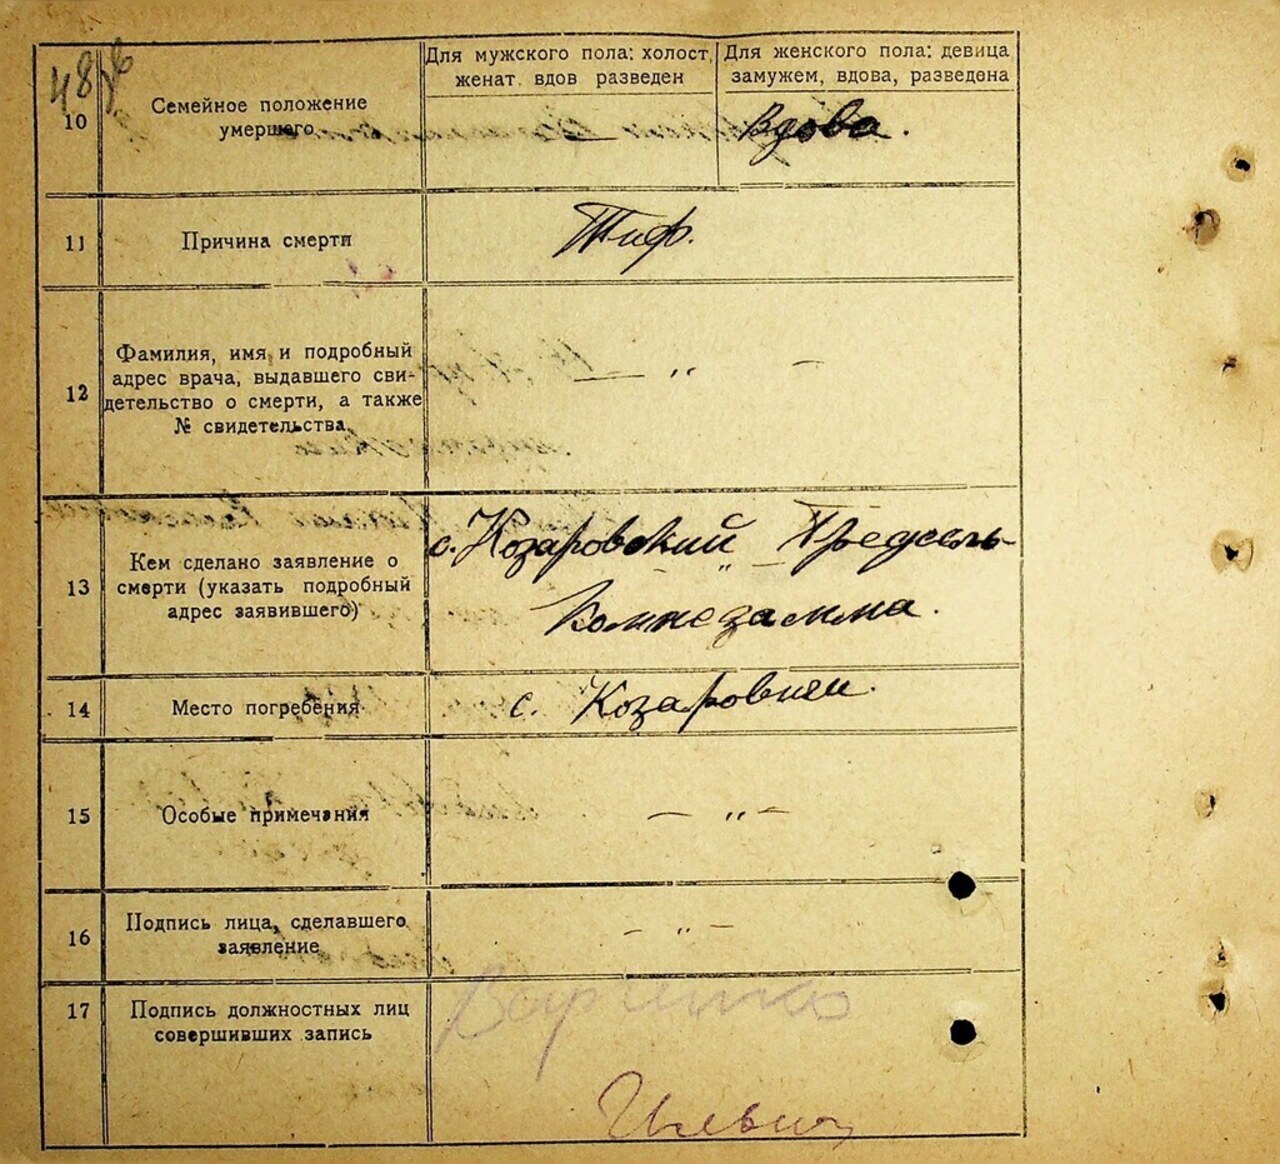 48
Для мужского пола: холост, женат вдов разведен
Для женского пола: девица замужем, вдова, разведена
10 Семейное положение умершего
— Вдова.
11 Причина смерти
Тиф.
12 Фамилия, имя и подробный
адрес врача, выдавшего сви-
детельство о смерти, а также
№ свидетельства
— „ —
13 Кем сделано заявление о
смерти (указать подробный
адрес заявившего)
с. Козаровский Предсель-
— „ —
Комнезамма.
14 Место погребения
с. Козаровичи.
15 Особые примечания
— „ —
16 Подпись лица, сделавшего
заявление
— „ —
17 Подпись должностных лиц
совершивших запись